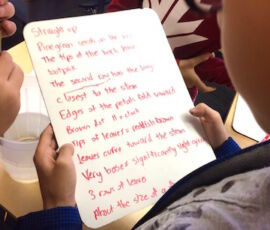 Straight up
Pine green seeds on the
The tip of the back
The second row has the long
closest to the stem
Edges of the petals fold inward
Brown dot
Tip of leaves reddish brown
leaves curve toward the stem
Very bases significantly light green
3 rows of leaves
About the size of a